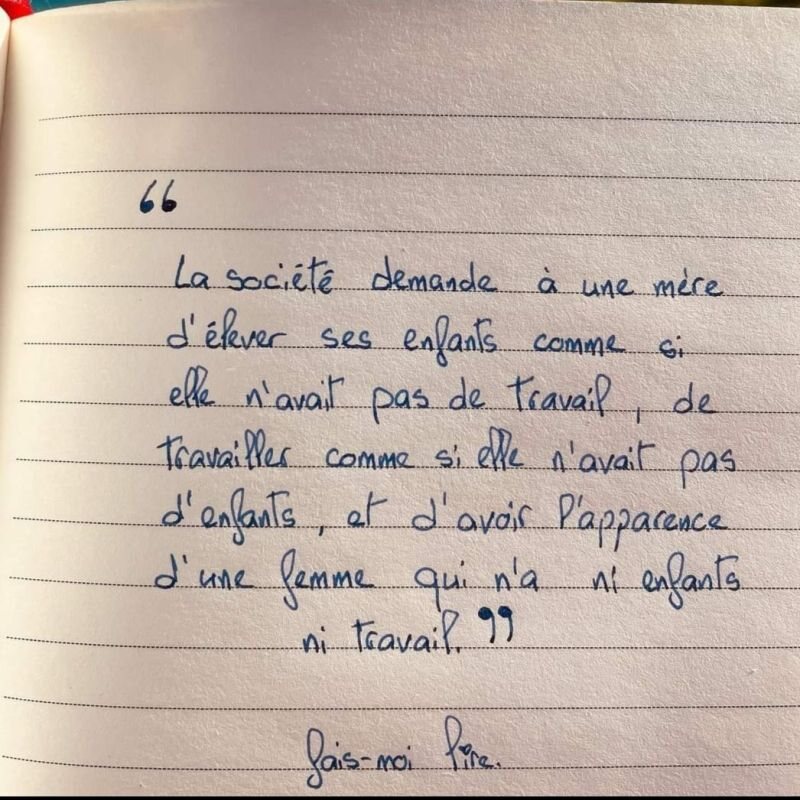 “
La société demande à une mère
d'élever ses enfants comme si
elle n'avait pas de travail, de
travailler comme si elle n'avait pas
d'enfants, et d'avoir l'apparence
d'une femme qui n'a ni enfants
ni travail. ”
fais-moi lire.